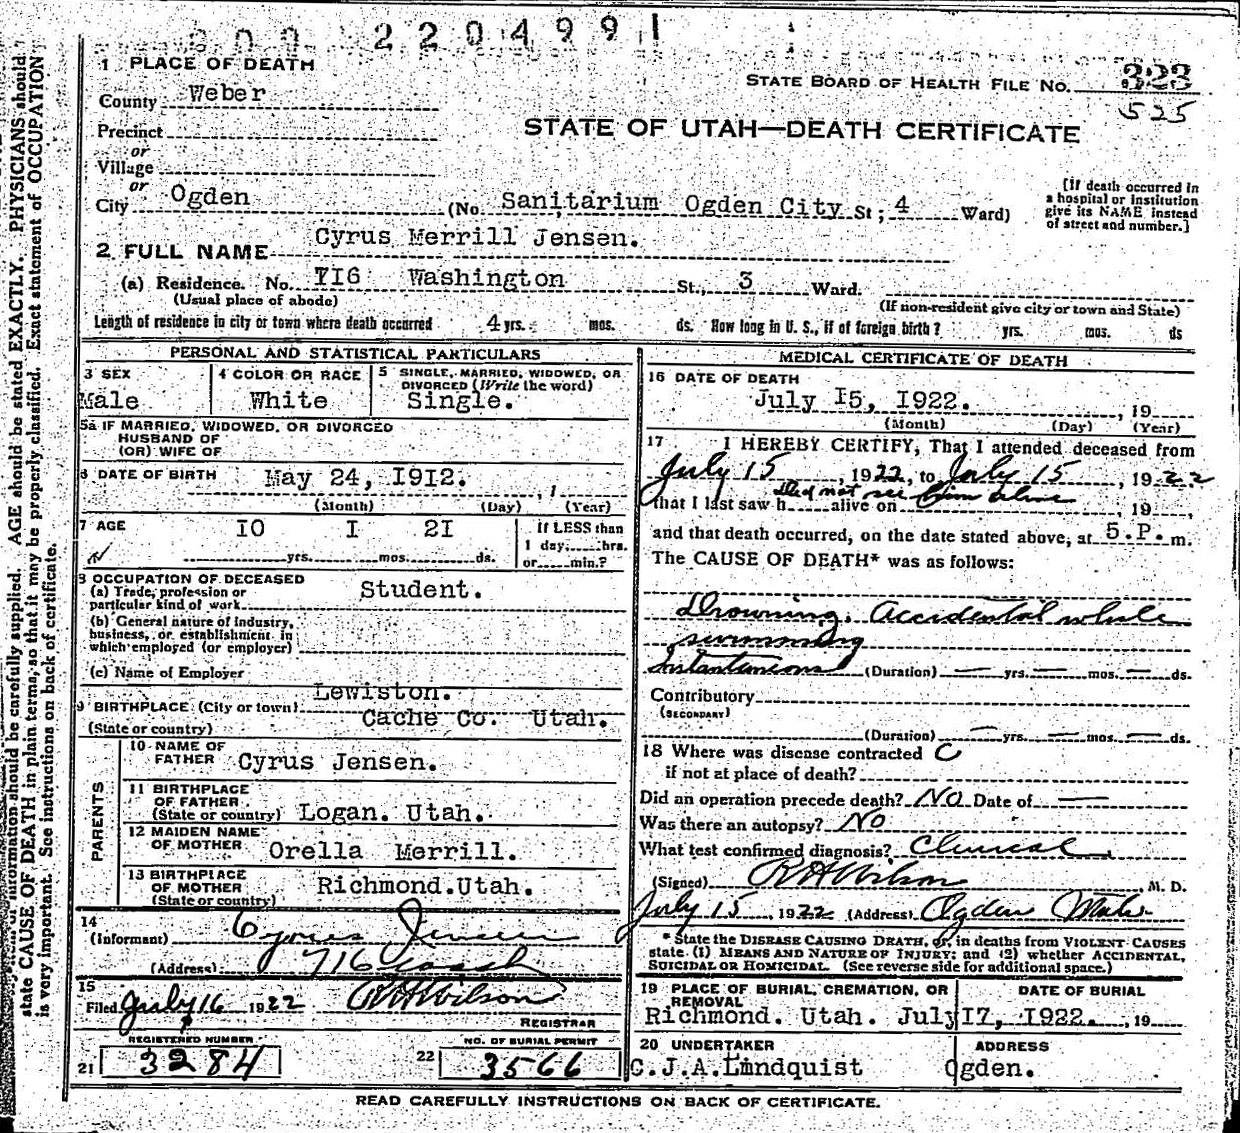 2204991
1 PLACE OF DEATH
STATE BOARD OF HEALTH FILE NO. 323
525
County Weber
STATE OF UTAH—DEATH CERTIFICATE
Precinct
or
Village
or
City Ogden (No. Sanitarium Ogden City St; 4 Ward)
[If death occurred in
a hospital or institution
give its NAME instead
of street and number.]
2 FULL NAME Cyrus Merrill Jensen.
(a) Residence. No. 7I6 Washington St., 3 Ward.
(Usual place of abode) (If non-resident give city or town and State)
Length of residence in city or town where death occurred 4 yrs. mos. ds. How long in U. S., if of foreign birth? yrs. mos. ds
PERSONAL AND STATISTICAL PARTICULARS
3 SEX
Male
4 COLOR OR RACE
White
5 SINGLE, MARRIED, WIDOWED, OR
DIVORCED (Write the word)
Single.
5a IF MARRIED, WIDOWED, OR DIVORCED
HUSBAND OF
(OR) WIFE OF
6 DATE OF BIRTH May 24, I9I2.
(Month) (Day) (Year)
7 AGE I0 I 2I
yrs. mos. ds.
If LESS than
1 day, hrs.
or min.?
8 OCCUPATION OF DECEASED
(a) Trade, profession or
particular kind of work Student.
(b) General nature of industry,
business, or establishment in
which employed (or employer)
(c) Name of Employer
9 BIRTHPLACE (City or town) Lewiston.
(State or country) Cache Co. Utah.
PARENTS
10 NAME OF
FATHER Cyrus Jensen.
11 BIRTHPLACE
OF FATHER
(State or country) Logan. Utah.
12 MAIDEN NAME
OF MOTHER Orella Merrill.
13 BIRTHPLACE
OF MOTHER
(State or country) Richmond.Utah.
14
(Informant) Cyrus Jensen
(Address) 716 Wash
15
Filed July 16 1922 R H Wilson
REGISTRAR
REGISTERED NUMBER
21 3284
NO. OF BURIAL PERMIT
22 3566
MEDICAL CERTIFICATE OF DEATH
16 DATE OF DEATH
July I5, I922. , 19
(Month) (Day) (Year)
17 I HEREBY CERTIFY, That I attended deceased from
July 15, 1922, to July 15, 1922
Did not see him alive
that I last saw h alive on , 19 ,
and that death occurred, on the date stated above, at 5.P.m.
The CAUSE OF DEATH* was as follows:
Drowning. Accidental while
swimming
Instantaneous (Duration) — yrs. — mos. — ds.
Contributory
(SECONDARY)
(Duration) — yrs. — mos. — ds.
18 Where was disease contracted
if not at place of death?
Did an operation precede death? No Date of —
Was there an autopsy? No
What test confirmed diagnosis? Clinical
(Signed) R H Wilson, M. D.
July 15, 1922 (Address) Ogden Utah
* State the DISEASE CAUSING DEATH, or, in deaths from VIOLENT CAUSES
state (1) MEANS AND NATURE OF INJURY; and (2) whether ACCIDENTAL,
SUICIDAL OR HOMICIDAL. (See reverse side for additional space.)
19 PLACE OF BURIAL, CREMATION, OR
REMOVAL
Richmond. Utah.
DATE OF BURIAL
July I7, I922. , 19
20 UNDERTAKER
C.J.A.Lindquist
ADDRESS
Ogden.
READ CAREFULLY INSTRUCTIONS ON BACK OF CERTIFICATE.
information should be carefully supplied. AGE should be stated EXACTLY. PHYSICIANS should
state CAUSE OF DEATH in plain terms, so that it may be properly classified. Exact statement of OCCUPATION
is very important. See instructions on back of certificate.